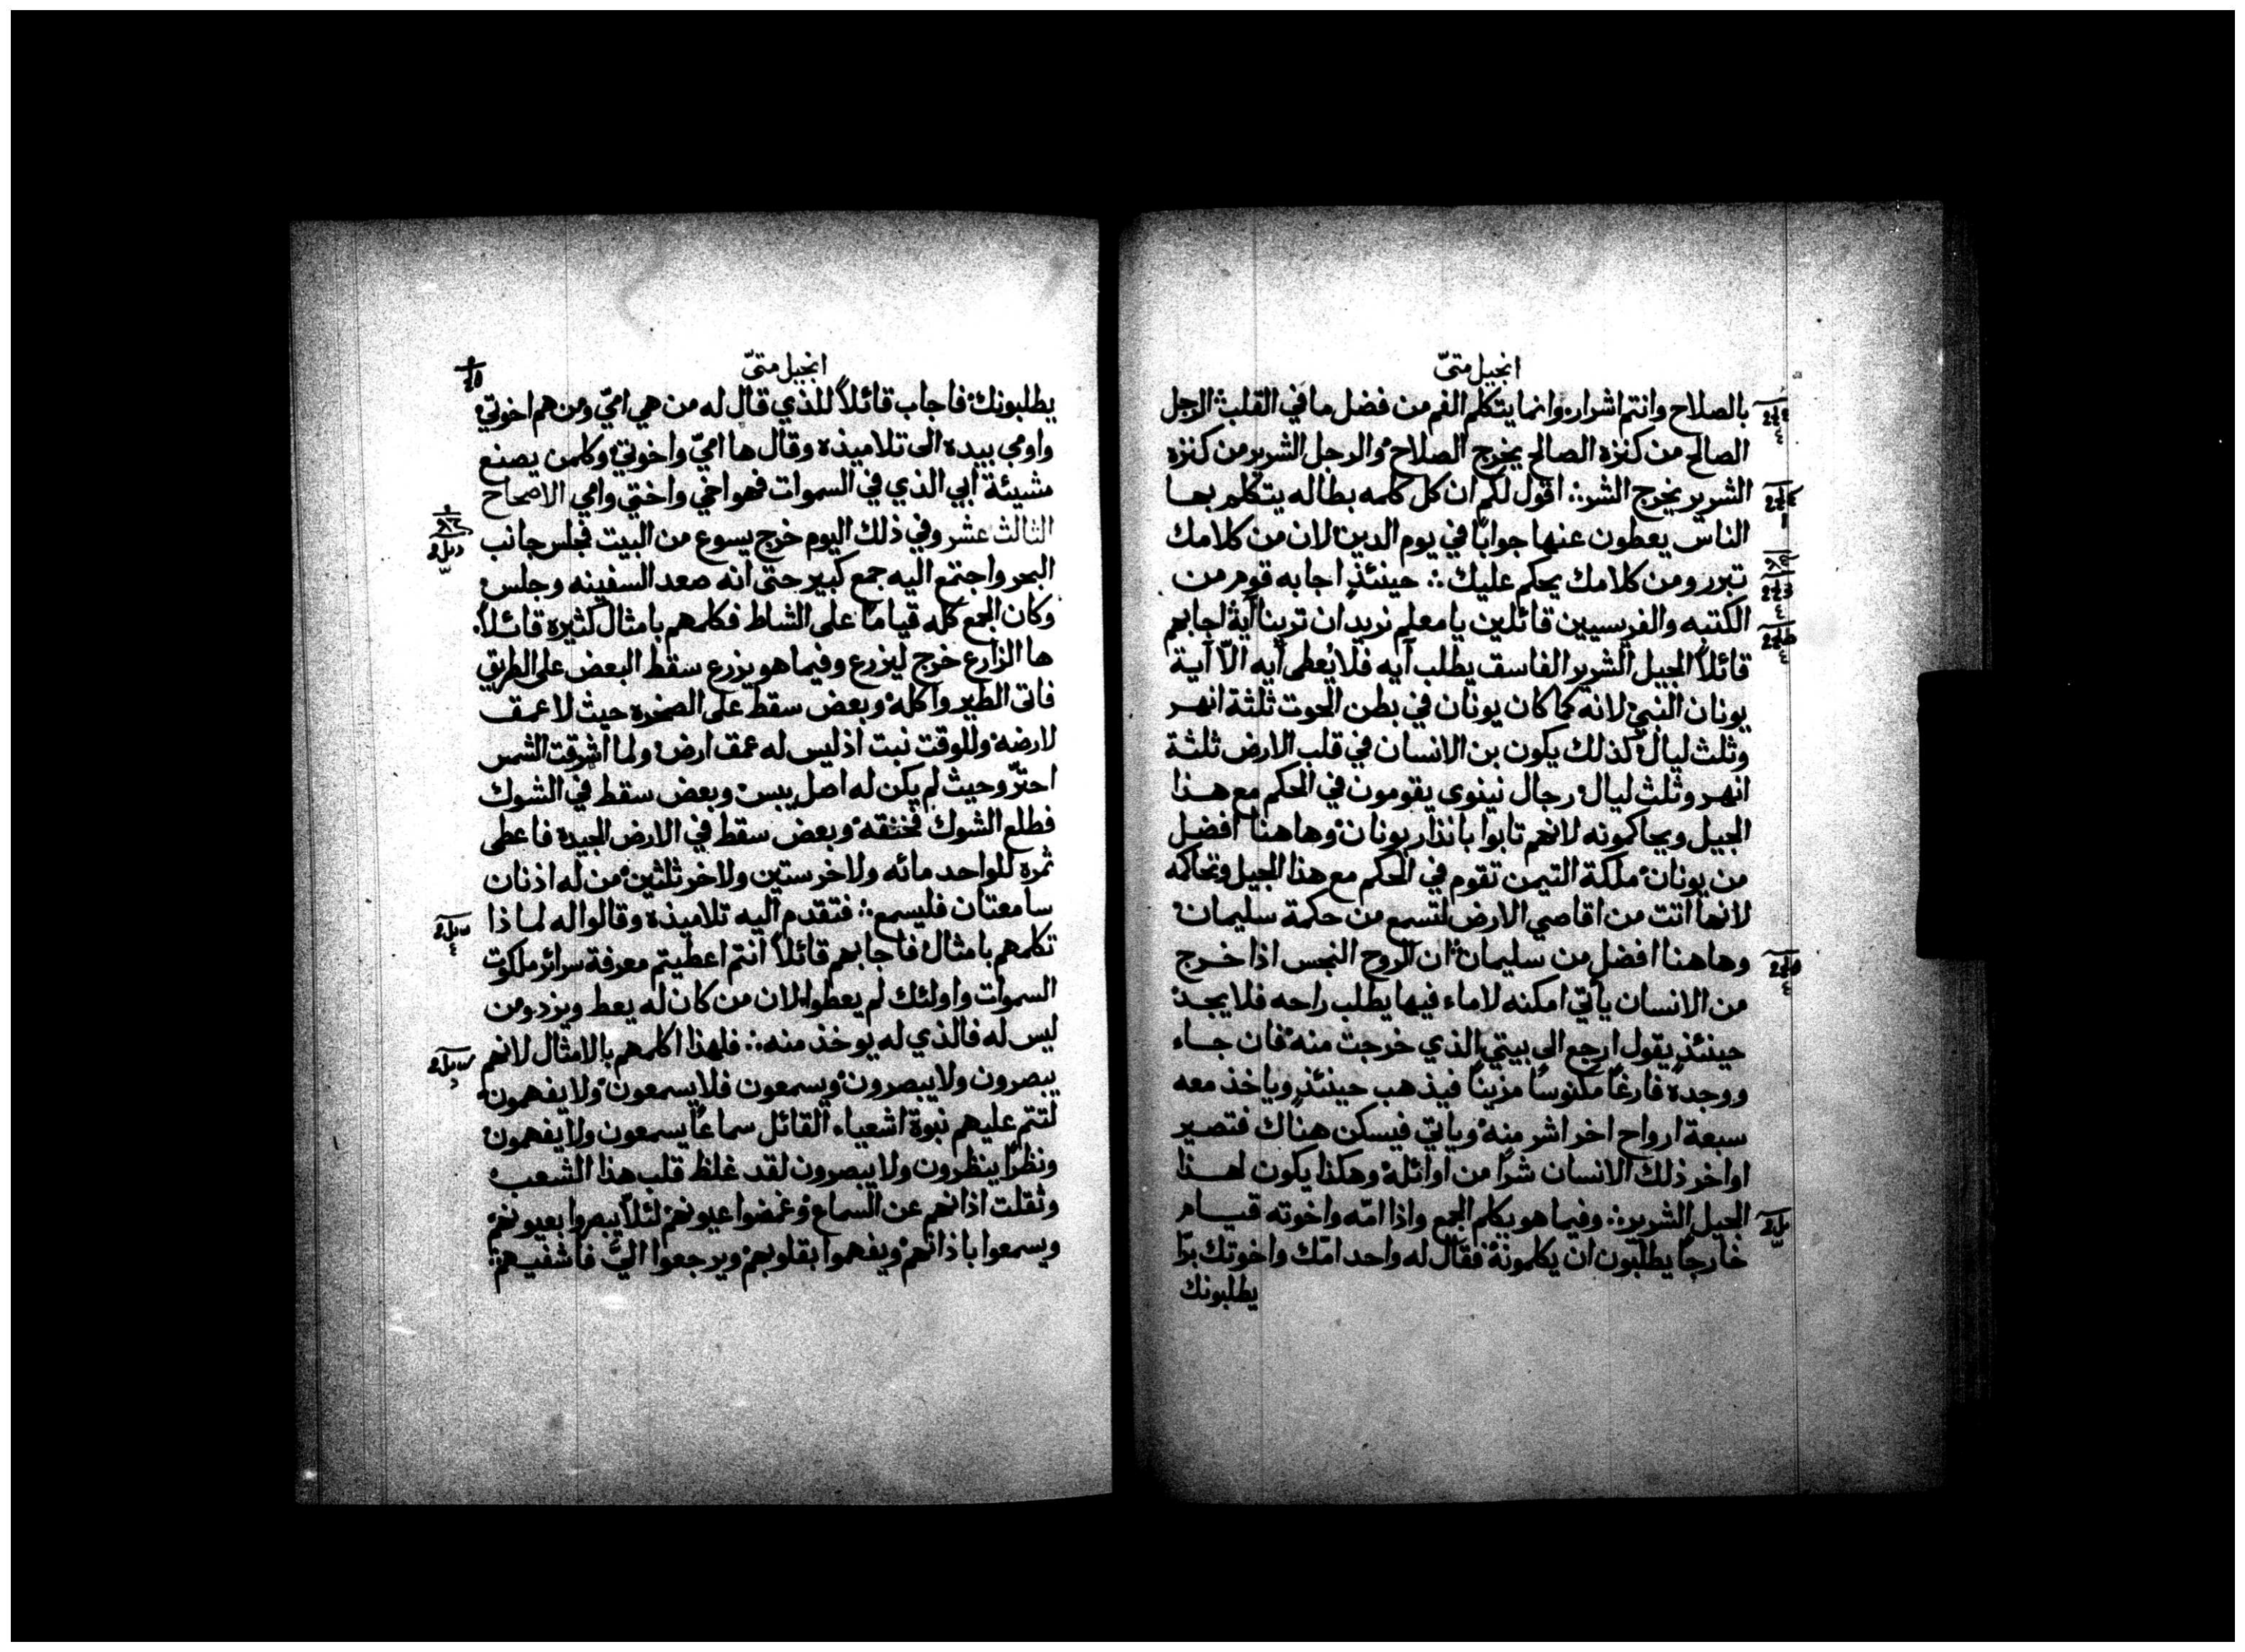 انجيل متىّ
بالصلاح وانتم اشرار وانما يتكلم الفم من فضل ما في القلب الرجل
الصالح من كنزه الصالح يخرج الصلاح والرجل الشرير من كنزه
الشرير يخرج الشر اقول لكم ان كل كلمه بطاله يتكلم بها
الناس يعطون عنها جوابًا في يوم الدين لان من كلامك
تبرر ومن كلامك يحكم عليك حينئذٍ اجابه قوم من
الكتبه والفريسيين قائلين يا معلم نريد ان ترينا آية اجابهم
قائلاً الجيل الشرير الفاسق يطلب آيه فلا يُعطى آيه الّا آية
يونان النبي لانه كما كان يونان في بطن الحوت ثلثة انهر
وثلث ليال كذلك يكون بن الانسان في قلب الارض ثلثة
انهر وثلث ليال رجال نينوى يقومون في الحكم مع هذا
الجيل ويحاكمونه لانهم تابوا بانذار يونان وهاهنا افضل
من يونان ملكة التيمن تقوم في الحكم مع هذا الجيل وتحاكمه
لانها اتت من اقاصي الارض لتسمع من حكمة سليمان
وهاهنا افضل من سليمان ان الروح النجس اذا خرج
من الانسان يأتي امكنه لا ماء فيها يطلب راحه فلا يجد
حينئذٍ يقول ارجع الى بيتي الذي خرجت منه فان جاء
ووجده فارغًا مكنوسًا مزينًا فيذهب حينئذٍ وياخذ معه
سبعة ارواح اخر اشر منه وياتي فيسكن هناك فتصير
اواخر ذلك الانسان شرًا من اوائله وهكذا يكون لهذا
الجيل الشرير وفيما هو يكلم الجمع واذا امّه واخوته قيام
خارجًا يطلبون ان يكلمونه فقال له واحد امّك واخوتك برًا
يطلبونك
انجيل متىّ
يطلبونك فاجاب قائلاً للذي قال له من هي اميّ ومن هم اخوتي
واومى بيده الى تلاميذه وقال ها اميّ واخوتي وكلمن يصنع
مشيئة ابي الذي في السموات فهو اخي واختي وامي الاصحاح
الثالث عشر وفي ذلك اليوم خرج يسوع من البيت فجلس جانب
البحر واجتمع اليه جمع كبير حتى انه صعد السفينه وجلس
وكان الجمع كله قيامًا على الشاط فكلمهم بامثال كثيره قائلاً
ها الزارع خرج ليزرع وفيما هو يزرع سقط البعض على الطريق
فاتى الطير واكله وبعض سقط على الصخره حيث لا عمق
لارضه وللوقت نبت اذ ليس له عمق ارض ولما اشرقت الشمس
احترّ وحيث لم يكن له اصل يبس وبعض سقط في الشوك
فطلع الشوك فخنقه وبعض سقط في الارض الجيده فاعطى
ثمره للواحد مائه ولاخر ستين ولاخر ثلثين من له اذنان
سامعتان فليسمع فتقدم اليه تلاميذه وقالوا له لماذا
تكلمهم بامثال فاجابهم قائلاً انتم اعطيتم معرفة سرائر ملكوت
السموات واولئك لم يعطوا لان من كان له يعط ويزد ومن
ليس له فالذي له يوخذ منه فلهذا اكلمهم بالامثال لانهم
يبصرون ولا يبصرون ويسمعون فلا يسمعون ولا يفهمون
لتتم عليهم نبوة اشعياء القائل سماعًا يسمعون ولا يفهمون
ونظرًا ينظرون ولا يبصرون لقد غلظ قلب هذا الشعب
وثقلت اذانهم عن السماع وغمضوا عيونهم لئلا يبصروا بعيونهم
ويسمعوا باذانهم ويفهموا بقلوبهم ويرجعوا اليّ فاشفيهم